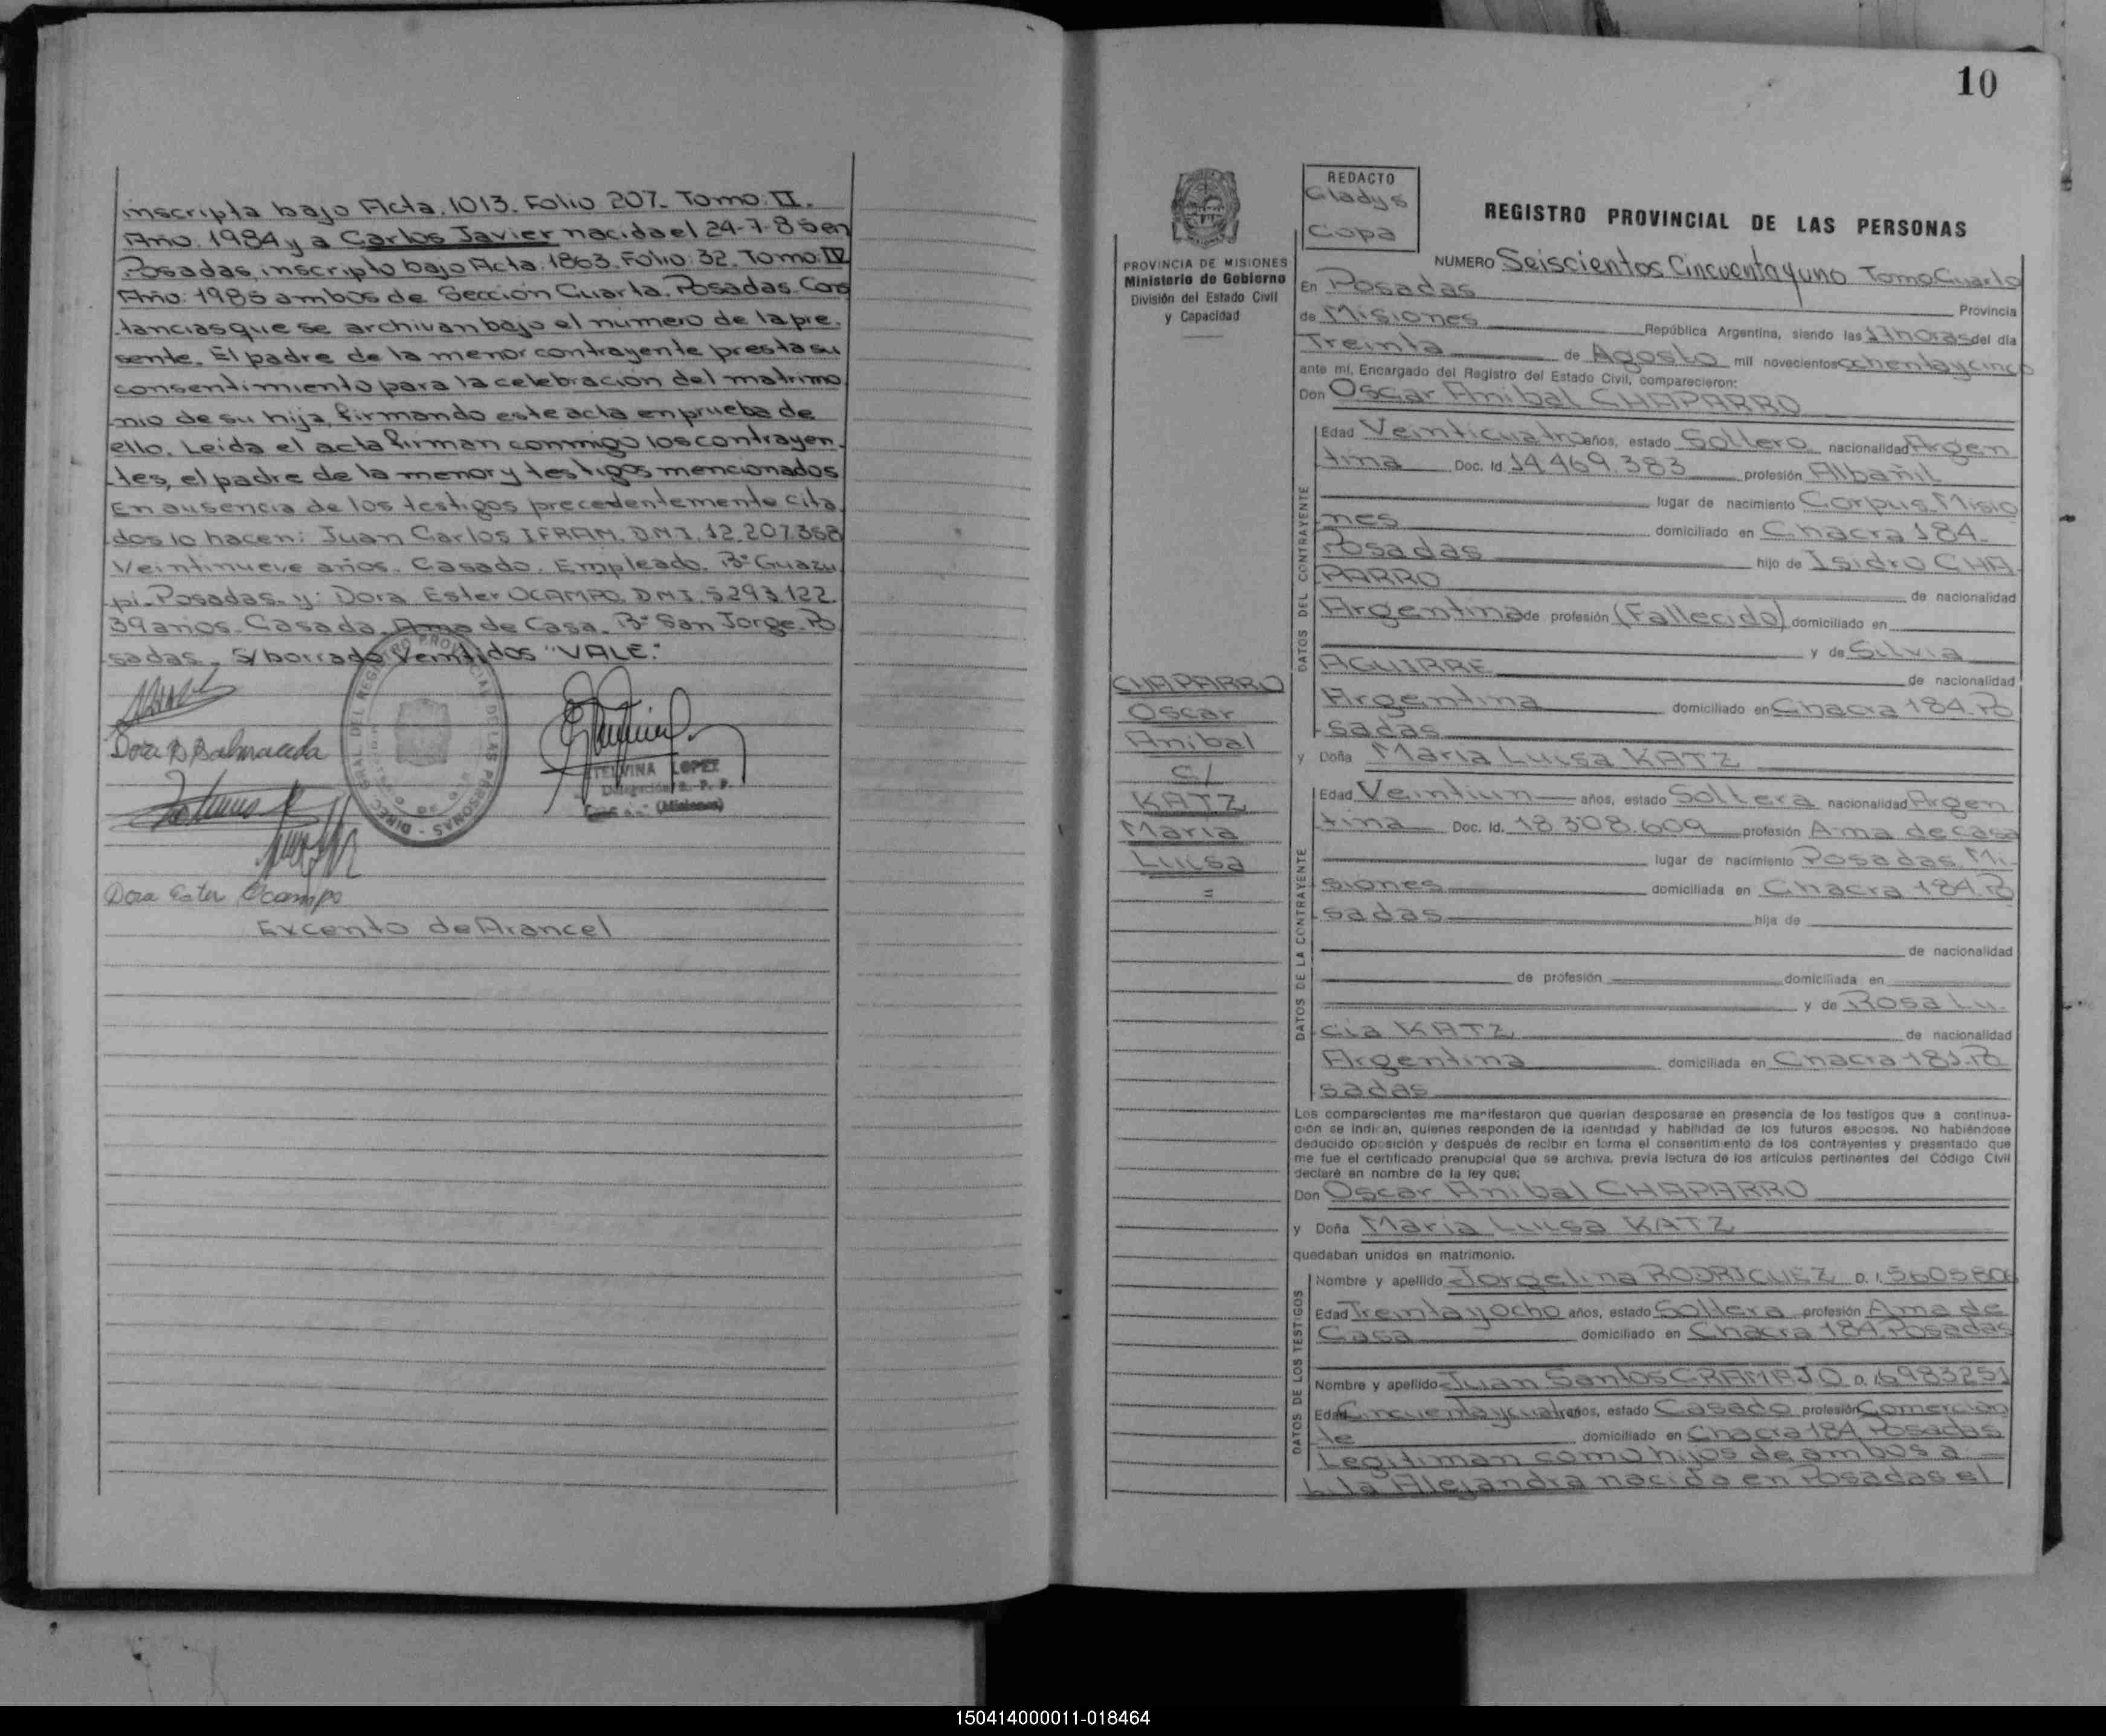 inscripta bajo Acta. 1013. Folio 207. Tomo: II.
Año. 1984 y a Carlos Javier nacida el 24-7-85 en
Posadas, inscripto bajo Acta. 1863. Folio: 32. Tomo: IV
Año: 1985 ambos de Sección Cuarta. Posadas. Cons
tancias que se archivan bajo el número de la pre.
sente. El padre de la menor contrayente presta su
consentimiento para la celebración del matrimo
nio de su hija, firmando este acta en prueba de
ello. Leida el acta firman conmigo los contrayen.
tes, el padre de la menor y testigos mencionados
En ausencia de los testigos precedentemente cita
dos lo hacen: Juan Carlos IFRAM. DNI. 12.207.368
Veintinueve años. Casado. Empleado. Bº Guazu
pi. Posadas. y: Dora Ester OCAMPO. DNI. 5293.122
39 años. Casada. Ama de Casa. Bº San Jorge. Po
sadas. S/borrado Veintidos "VALE."
Dora B Balmaceda
ETELVINA LOPEZ
(Misiones)
Dora Ester Ocampo
Excento de Arancel
10
REDACTO
Gladys
Copa
REGISTRO PROVINCIAL DE LAS PERSONAS
PROVINCIA DE MISIONES
Ministerio de Gobierno
División del Estado Civil
y Capacidad
NUMERO Seiscientos Cincuenta y uno Tomo Cuarto
En Posadas Provincia
de Misiones República Argentina, siendo las 11 horas del día
Treinta de Agosto mil novecientos ochenta y cinco
ante mí, Encargado del Registro del Estado Civil, comparecieron:
Don Oscar Anibal CHAPARRO
DATOS DEL CONTRAYENTE
Edad Veinticuatro años, estado Soltero nacionalidad Argen
tina Doc. Id. 14.469.383 profesión Albañil
lugar de nacimiento Corpus. Misio
nes domiciliado en Chacra 184.
Posadas hijo de Isidro CHA
PARRO de nacionalidad
Argentina de profesión (Fallecido) domiciliado en
y de Silvia
AGUIRRE de nacionalidad
Argentina domiciliado en Chacra 184. Po
sadas
CHAPARRO
Oscar
Anibal
C/
KATZ
Maria
Luisa
=
y Doña Maria Luisa KATZ
DATOS DE LA CONTRAYENTE
Edad Veintiun años, estado Soltera nacionalidad Argen
tina Doc. Id. 18.308.609 profesión Ama de casa
lugar de nacimiento Posadas. Mi-
siones domiciliada en Chacra 184. Po
sadas hija de
de nacionalidad
de profesión domiciliada en
y de Rosa Lu.
cia KATZ de nacionalidad
Argentina domiciliada en Chacra 181. Po
sadas
Los comparecientes me manifestaron que querían desposarse en presencia de los testigos que a continua-
ción se indican, quienes responden de la identidad y habilidad de los futuros esposos. No habiéndose
deducido oposición y después de recibir en forma el consentimiento de los contrayentes y presentado que
me fue el certificado prenupcial que se archiva, previa lectura de los artículos pertinentes del Código Civil
declaré en nombre de la ley que:
Don Oscar Anibal CHAPARRO
y Doña Maria Luisa KATZ
quedaban unidos en matrimonio.
DATOS DE LOS TESTIGOS
Nombre y apellido Jorgelina RODRIGUEZ D. I. 5605806
Edad Treinta y Ocho años, estado Soltera profesión Ama de
Casa domiciliado en Chacra 184. Posadas
Nombre y apellido Juan Santos GRAMAJO D. I. 6983251
Edad Cincuenta y cuatro años, estado Casado profesión Comercian
te domiciliado en Chacra 184 Posadas
Legitiman como hijos de ambos a
Lila Alejandra nacida en Posadas el
150414000011-018464